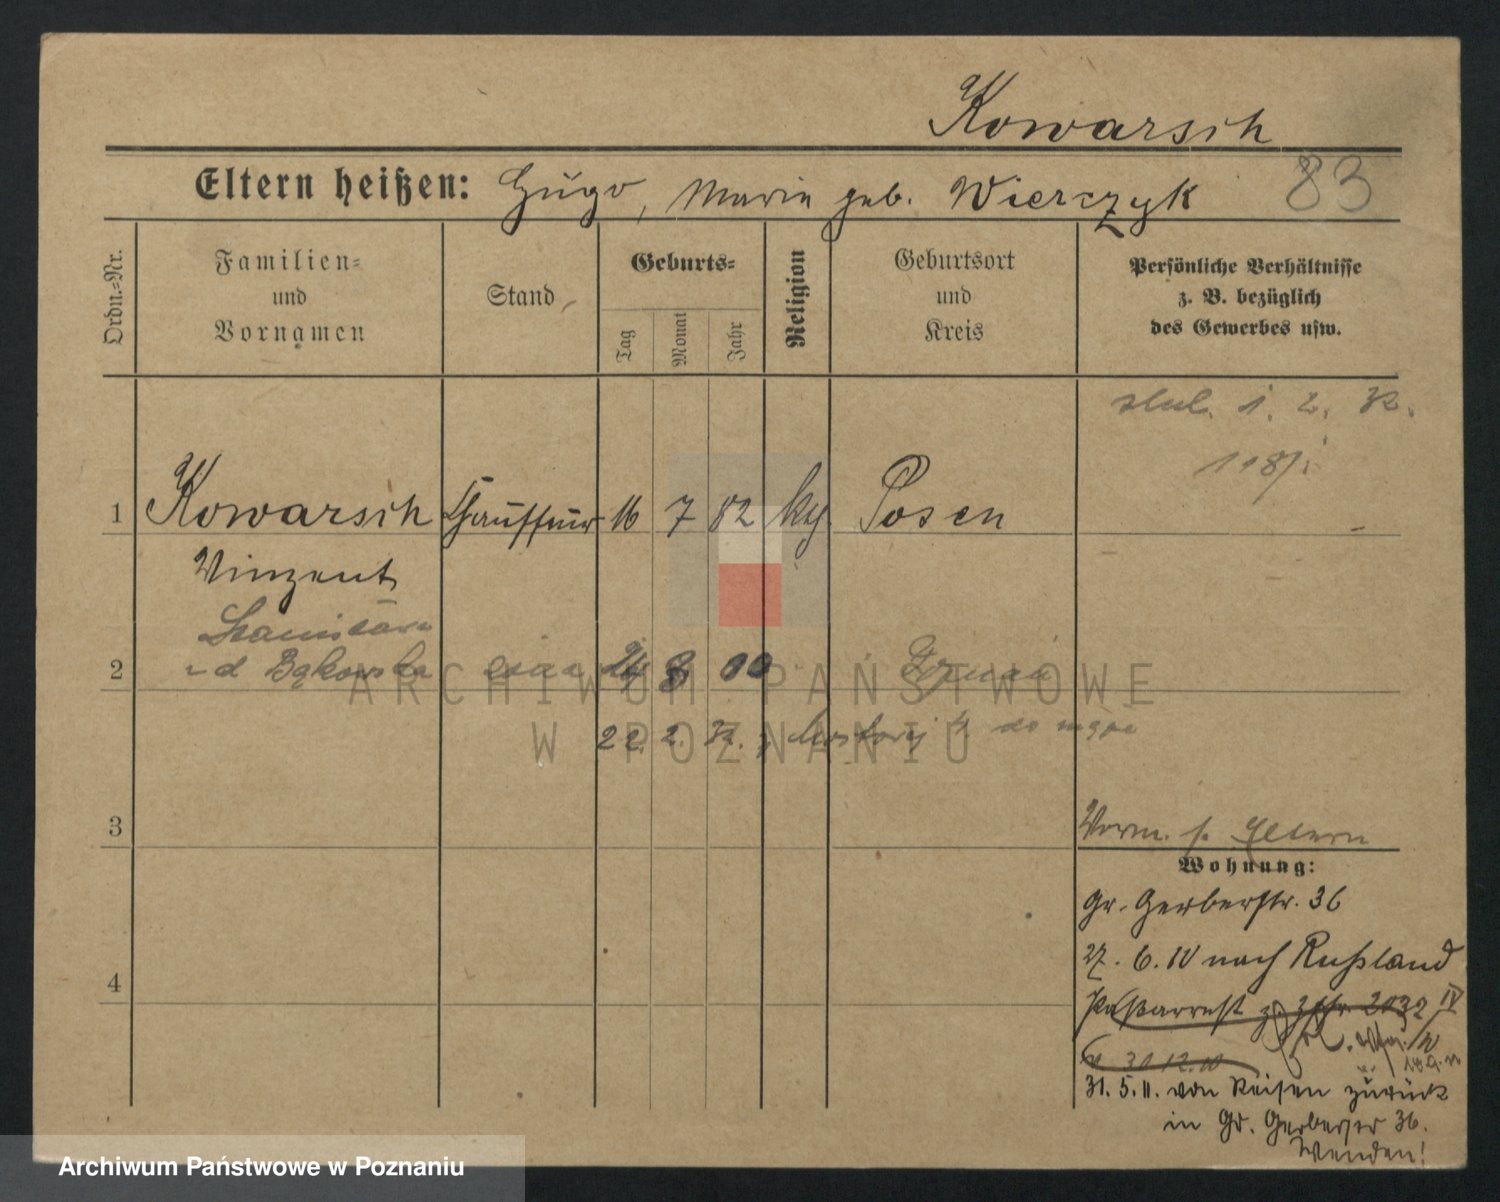 Kowarsch
Eltern heißen: Hugo, Marie geb. Wierczyk 83
Ordn.-Nr.
Familien-
und
Vornamen
Stand
Geburts-
Tag
Monat
Jahr
Religion
Geburtsort
und
Kreis
Persönliche Verhältnisse
z. B. bezüglich
des Gewerbes usw.
1. 2.
1 Kowarsch Chauffeur 16 7 82 kg Posen
Vinzent
2 z d Bąkowska 8 00
22. 2.
do męża
3
Vorm. s. Eltern
Wohnung:
Gr. Gerberstr. 36
27. 6. 10 nach Rußland
Paßarrest 2032 IV
31 12 10
4
31. 5. 11. von Reisen zurück
in Gr. Gerberstr 36.
Wenden!
ARCHIWUM PAŃSTWOWE
W POZNANIU
Archiwum Państwowe w Poznaniu